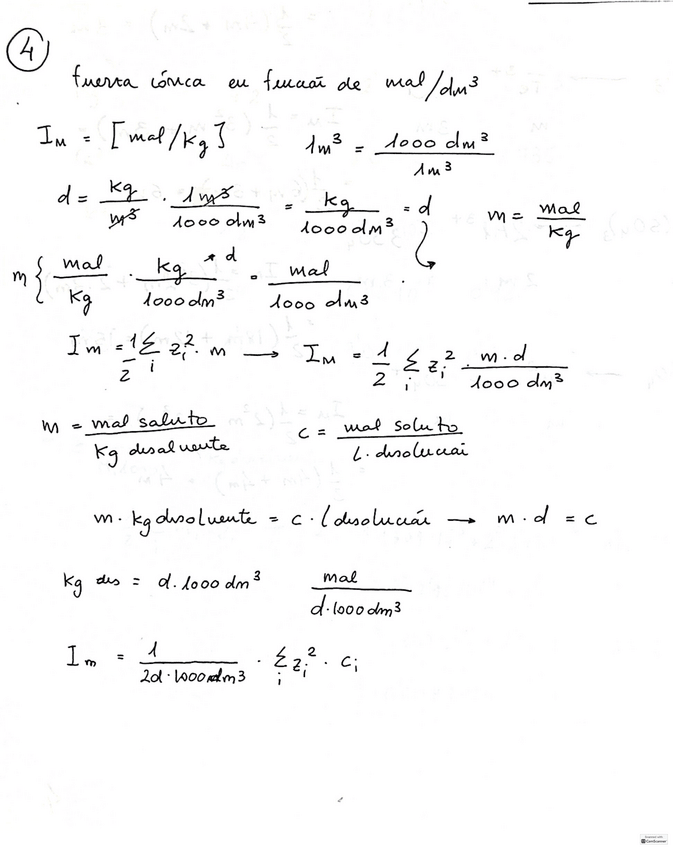 4
fuerza iónica en función de mol/dm³
I_M = [mol/kg] 1m³ = 1000 dm³ / 1m³
d = kg/m³ · 1m³/1000 dm³ = kg/1000 dm³ = d m = mol/kg
m { mol/kg · kg/1000 dm³ → d = mol/1000 dm³ .
I m = 1/2 Σ_i z_i² · m → I_M = 1/2 Σ_i z_i² · m·d/1000 dm³
m = mol soluto/kg disolvente c = mol soluto/L. disolución
m · kg disolvente = c · l disolución → m · d = c
kg des = d · 1000 dm³ mol/d·1000 dm³
I_m = 1/2d·1000 dm³ · Σ_i z_i² · c_i
CamScanner